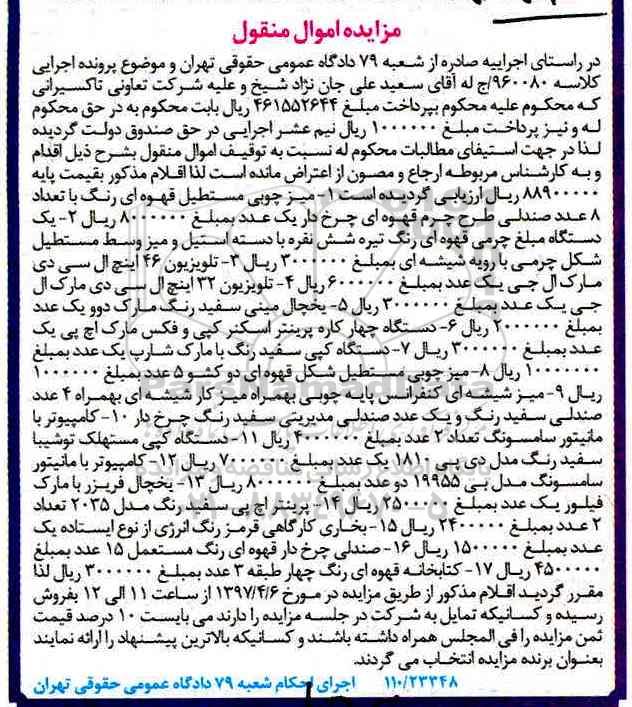 مزایده اموال منقول
در راستای اجراییه صادره از شعبه ۷۹ دادگاه عمومی حقوقی تهران و موضوع پرونده اجرایی
کلاسه ۹۶۰۰۸۰/ج له آقای سعید علی جان نژاد شیخ و علیه شرکت تعاونی تاکسیرانی
که محکوم علیه محکوم بپرداخت مبلغ ۴۶۱۵۵۲۶۴۴ ریال بابت محکوم به در حق محکوم
له و نیز پرداخت مبلغ ۱۰۰۰۰۰۰ ریال نیم عشر اجرایی در حق صندوق دولت گردیده
لذا در جهت استیفای مطالبات محکوم له نسبت به توقیف اموال منقول بشرح ذیل اقدام
و به کارشناس مربوطه ارجاع و مصون از اعتراض مانده است لذا اقلام مذکور بقیمت پایه
۸۸۹۰۰۰۰۰ ریال ارزیابی گردیده است ۱- میز چوبی مستطیل قهوه ای رنگ با تعداد
۸ عدد صندلی طرح چرم قهوه ای چرخ دار یک عدد بمبلغ ۸۰۰۰۰۰۰ ریال ۲- یک
دستگاه مبلغ چرمی قهوه ای رنگ تیره شش نفره با دسته استیل و میز وسط مستطیل
شکل چرمی با رویه شیشه ای بمبلغ ۳۰۰۰۰۰۰ ریال ۳- تلویزیون ۴۶ اینچ ال سی دی
مارک ال جی یک عدد بمبلغ ۶۰۰۰۰۰۰ ریال ۴- تلویزیون ۳۲ اینچ ال سی دی مارک ال
جی یک عدد بمبلغ ۳۰۰۰۰۰۰ ریال ۵- یخچال مینی سفید رنگ مارک دوو یک عدد
بمبلغ ۲۰۰۰۰۰۰ ریال ۶- دستگاه چهار کاره پرینتر اسکنر کپی و فکس مارک اچ پی یک
عدد بمبلغ ۳۰۰۰۰۰۰ ریال ۷- دستگاه کپی سفید رنگ با مارک شارپ یک عدد بمبلغ
۱۰۰۰۰۰۰۰ ریال ۸- میز چوبی مستطیل شکل قهوه ای دو کشو ۵ عدد بمبلغ ۱۰۰۰۰۰۰۰
ریال ۹- میز شیشه ای کنفرانس پایه چوبی بهمراه میز کار شیشه ای بهمراه ۴ عدد
صندلی سفید رنگ و یک عدد صندلی مدیریتی سفید رنگ چرخ دار ۱۰- کامپیوتر با
مانیتور سامسونگ تعداد ۲ عدد بمبلغ ۴۰۰۰۰۰۰ ریال ۱۱- دستگاه کپی مستهلک توشیبا
سفید رنگ مدل دی پی ۱۸۱۰ یک عدد بمبلغ ۷۰۰۰۰۰۰ ریال ۱۲- کامپیوتر با مانیتور
سامسونگ مدل بی ۱۹۹۵۵ دو عدد بمبلغ ۸۰۰۰۰۰۰ ریال ۱۳- یخچال فریزر با مارک
فیلور یک عدد بمبلغ ۲۵۰۰۰۰۰ ریال ۱۴- پرینتر اچ پی سفید رنگ مدل ۲۰۳۵ تعداد
۲ عدد بمبلغ ۲۴۰۰۰۰۰ ریال ۱۵- بخاری کارگاهی قرمز رنگ انرژی از نوع ایستاده یک
عدد بمبلغ ۱۵۰۰۰۰۰ ریال ۱۶- صندلی چرخ دار قهوه ای رنگ مستعمل ۱۵ عدد بمبلغ
۴۵۰۰۰۰۰ ریال ۱۷- کتابخانه قهوه ای رنگ چهار طبقه ۳ عدد بمبلغ ۳۰۰۰۰۰۰ ریال لذا
مقرر گردید اقلام مذکور از طریق مزایده در مورخ ۱۳۹۷/۴/۶ از ساعت ۱۱ الی ۱۲ بفروش
رسیده و کسانیکه تمایل به شرکت در جلسه مزایده را دارند می بایست ۱۰ درصد قیمت
ثمن مزایده را فی المجلس همراه داشته باشند و کسانیکه بالاترین پیشنهاد را ارائه نمایند
بعنوان برنده مزایده انتخاب می گردند.
۱۱۰/۲۳۳۴۸ اجرای احکام شعبه ۷۹ دادگاه عمومی حقوقی تهران